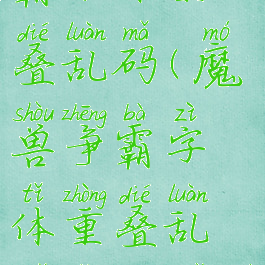 dié luàn mǎ mó
叠乱码(魔
shòu zhēng bà zì
兽争霸字
tǐ zhòng dié luàn
体重叠乱